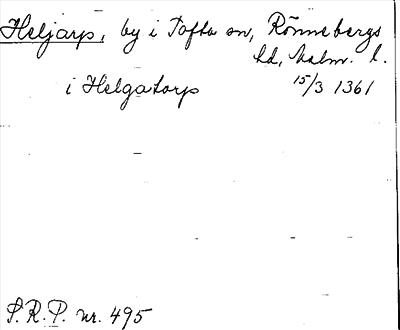 Heljarp, by i Tofta sn, Rönnebergs
hd, Malm. l.
i Helgatorp 15/3 1361
S.R.P. nr. 495